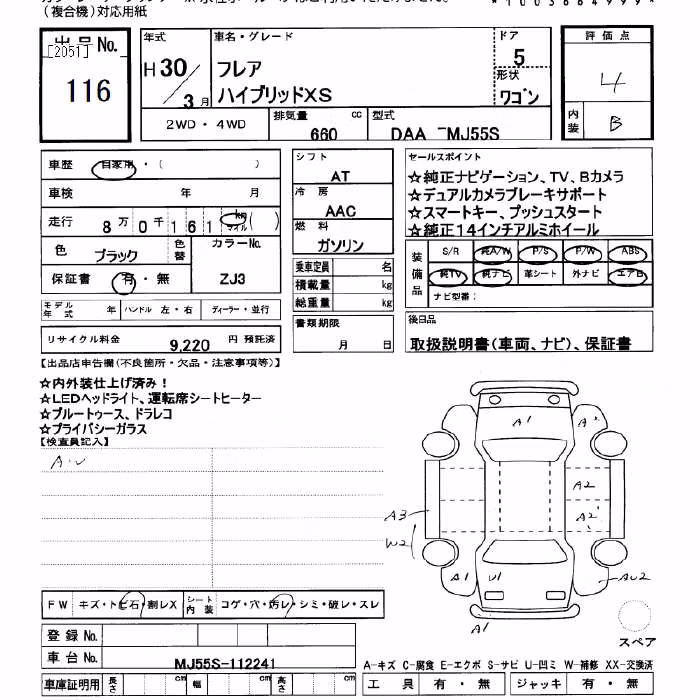 （複合機）対応用紙
*1003664999*
出品No.
[2051]
116
年式
H30/3月
車名・グレード
フレア
ハイブリッドXS
ドア
5
形状
ワゴン
評価点
4
内装
B
2WD・4WD
排気量
660 cc
型式
DAA MJ55S
車歴 自家用・( )
車検 年 月
走行 8万0千161 km マイル ( )
色 ブラック
色替
カラーNo.
ZJ3
保証書 有・無
モデル年式 年
ハンドル 左・右
ディーラー・並行
リサイクル料金 9,220 円 預託済
シフト
AT
冷房
AAC
燃料
ガソリン
乗車定員 名
積載量 kg
総重量 kg
書類期限
月 日
セールスポイント
☆純正ナビゲーション、TV、Bカメラ
☆デュアルカメラブレーキサポート
☆スマートキー、プッシュスタート
☆純正14インチアルミホイール
装備品
S/R 純A/W P/S P/W ABS
純TV 純ナビ 革シート 外ナビ エアB
ナビ型番：
後日品
取扱説明書(車両、ナビ)、保証書
【出品店申告欄(不良箇所・欠品・注意事項等)】
☆内外装仕上げ済み！
☆LEDヘッドライト、運転席シートヒーター
☆ブルートゥース、ドラレコ
☆プライバシーガラス
【検査員記入】
A1
A2
A2
A2'
A3
W2
A1
U1
AU2
A1
スペア
FW キズ・トビ石・割レX
シート内装 コゲ・穴・汚レ・シミ・破レ・スレ
登録No.
車台No. MJ55S-112241
車庫証明用 長さ cm 幅 cm 高さ cm
A-キズ C-腐食 E-エクボ S-サビ U-凹ミ W-補修 XX-交換済
工具 有・無 ジャッキ 有・無